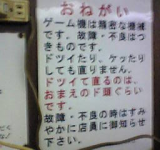 おねがい
ゲーム機は精密な機械
です。故障・不良はつ
きものです。
ドツイたり、ケッたり
しても直りません。
ドツイて直るのは、
おまえのド頭ぐらい
です。
故障・不良の時はすみ
やかに店員に御知らせ
下さい。